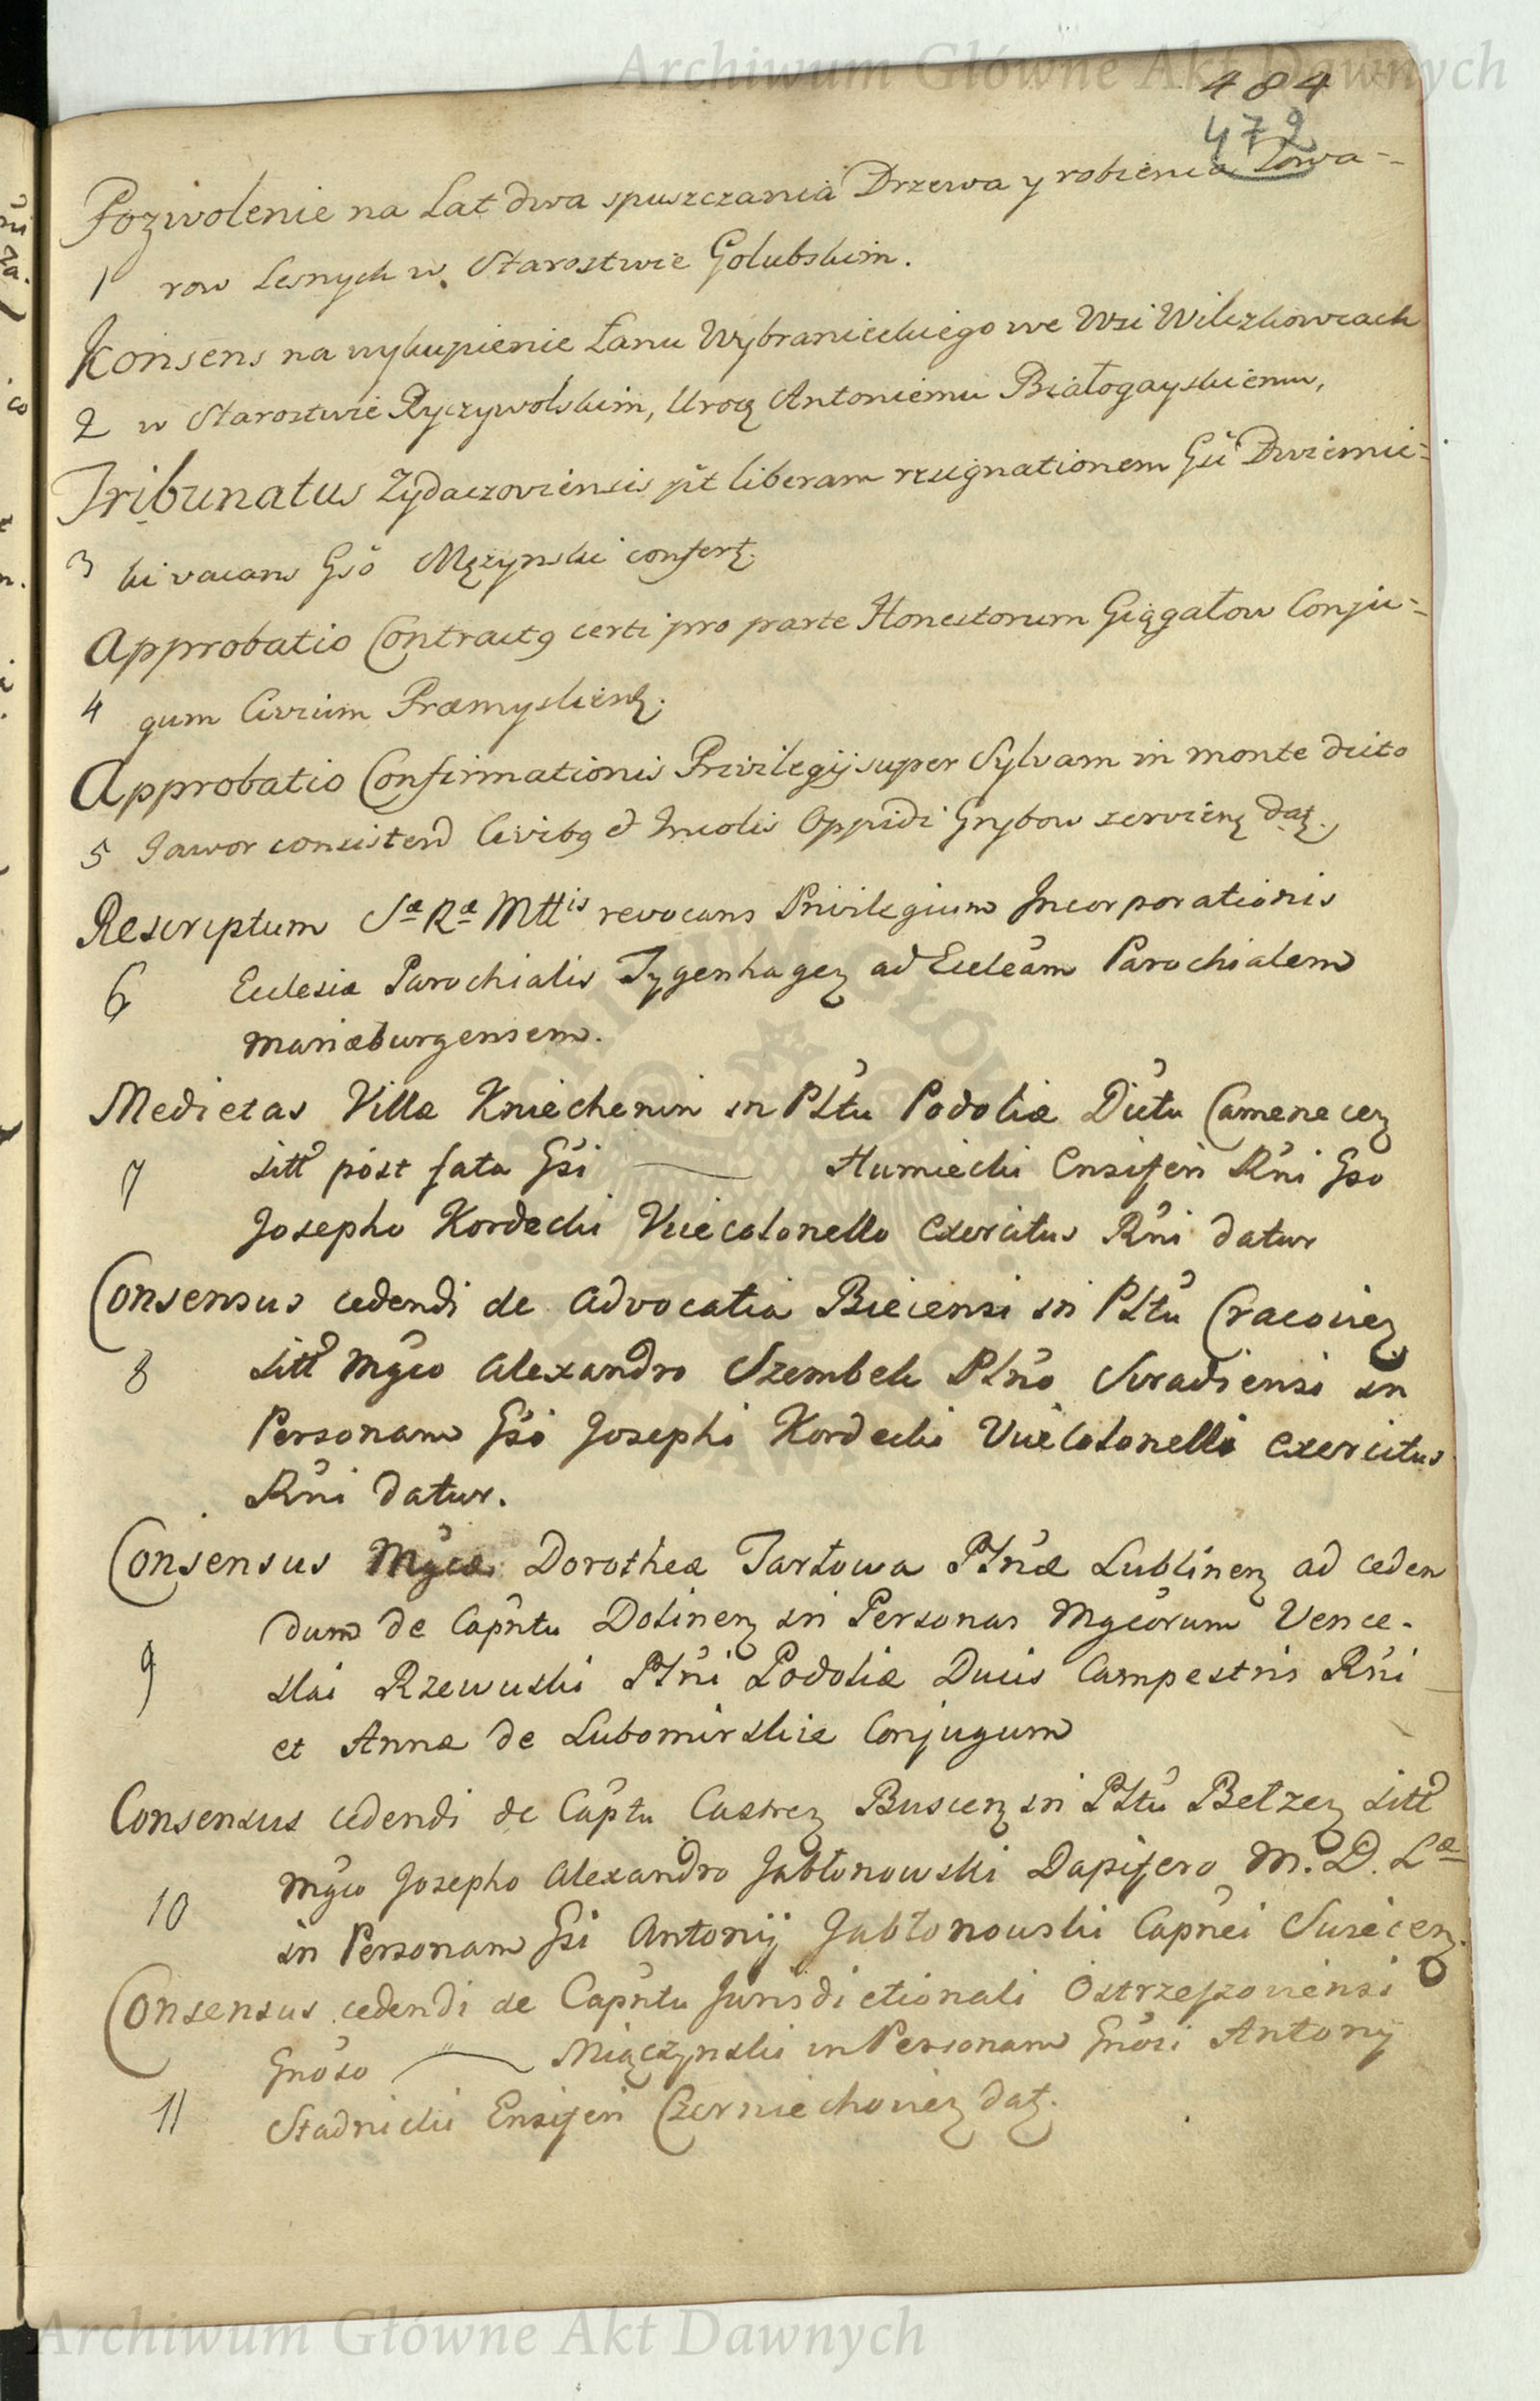 Archiwum Główne Akt Dawnych
484
472
Pozwolenie na Lat dwa spuszczania Drzewa y robienia Towa-
1 row Lesnych w Starostwie Golubskim.
Konsens na wykupienie Łanu Wybranieckiego we Wsi Wilczkowcach
2 w Starostwie Ryczywolskim, Uroą Antoniemu Białogayskiemu,
Tribunatus Zydaczoviensis pt liberam resignationem Gsi Dwiernic-
3 ki vacans Gso Mężynski confert.
Approbatio Contractq certi pro parte Honestorum Giągałow Conju-
4 gum Civium Præmysliens.
Approbatio Confirmationis Privilegij super Sylvam in monte dicto
5 Jawor consisten Civibq et Incolis Oppidi Grybow servien dat.
Rescriptum Sæ Ræ Mttis revocans Privilegium Incorporationis
6 Eclesiæ Parochialis Tygenhagen ad Eccleam Parochialem
Mariæburgensem.
Medietas Villæ Kniechenin in Plttu Podoliæ Dictu Camenecen
7 sitt post fata Gsi — Humiecki Ensiferi Rni Gso
Josepho Kordecki Vicecolonello Exercitus Rni datur
Consensus cedendi de Advocatia Bieciensi in Plttu Cracovien
8 sitt Mgco Alexandro Szembek Pltno Siradiensi in
Personam Gsi Josephi Kordecki Vicecolonelli exercitus
Rni datur.
Consensus Mgcæ Dorotheæ Tarłowa Pltnæ Lublinen ad ceden
dum de Capntu Dolinen in Personas Mgcorum Vence-
9 slai Rzewuski Pltni Podoliæ Ducis Campestris Rni
et Annæ de Lubomirskie Conjugum
Consensus cedendi de Captu Castren Buscen in Plttu Belzen sitt
Mgco Josepho Alexandro Jabłonowski Dapifero M. D. Læ
10 in Personam Gsi Antonij Jabłonowski Capnei Surecen.
Consensus cedendi de Capntu Jurisdictionali Ostrzeszoviensi
Gnoso — Miączynski in Personam Gnosi Antonij
11 Stadnicki Ensiferi Czerniechovien dat.
Archiwum Główne Akt Dawnych